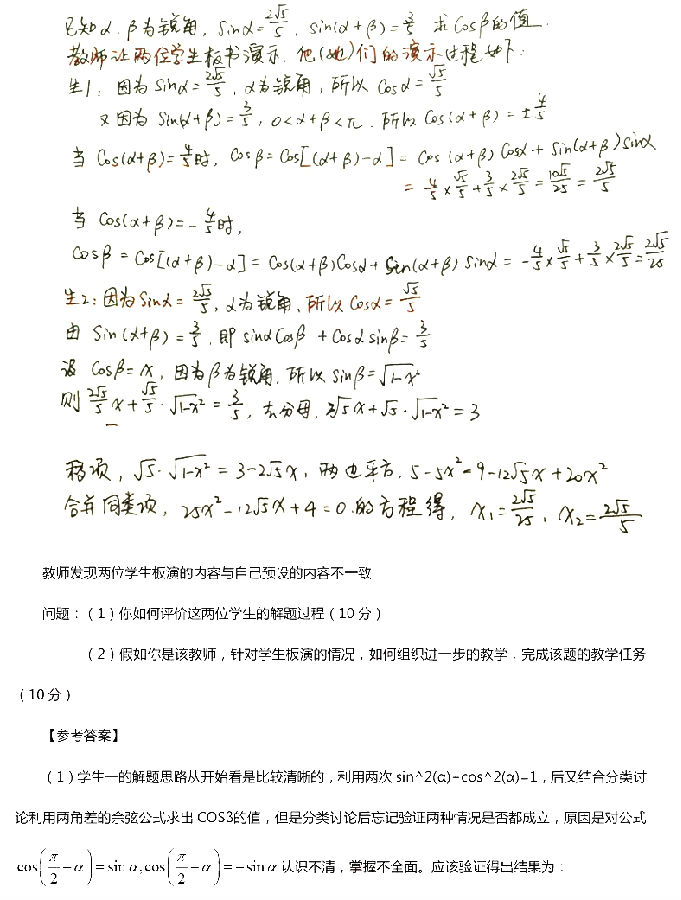 已知α、β为锐角, Sinα=2√5/5, sin(α+β)=3/5 求Cosβ的值.
教师让两位学生板书演示, 他(她)们的演示过程如下:
生1: 因为Sinα=2√5/5, α为锐角, 所以Cosα=√5/5
又因为Sin(α+β)=3/5, 0<α+β<π, 所以Cos(α+β)=±4/5
当Cos(α+β)=4/5时, Cosβ=Cos[(α+β)-α]=Cos(α+β)Cosα+Sin(α+β)Sinα
=4/5×√5/5+3/5×2√5/5=10√5/25=2√5/5
当Cos(α+β)=-4/5时,
Cosβ=Cos[(α+β)-α]=Cos(α+β)Cosα+Sin(α+β)Sinα=-4/5×√5/5+3/5×2√5/5=2√5/25
生2: 因为Sinα=2√5/5, α为锐角, 所以Cosα=√5/5
由Sin(α+β)=3/5, 即sinαCosβ+Cosαsinβ=3/5
设Cosβ=x, 因为β为锐角, 所以sinβ=√(1-x²)
则2√5/5x+√5/5·√(1-x²)=3/5, 去分母, 2√5x+√5·√(1-x²)=3
移项, √5·√(1-x²)=3-2√5x, 两边平方, 5-5x²=9-12√5x+20x²
合并同类项, 25x²-12√5x+4=0的方程得, x₁=2√5/25, x₂=2√5/5
教师发现两位学生板演的内容与自己预设的内容不一致
问题：（1）你如何评价这两位学生的解题过程（10分）
（2）假如你是该教师，针对学生板演的情况，如何组织进一步的教学，完成该题的教学任务
（10分）
【参考答案】
（1）学生一的解题思路从开始看是比较清晰的，利用两次sin^2(α)-cos^2(α)=1，后又结合分类讨
论利用两角差的余弦公式求出COS3的值，但是分类讨论后忘记验证两种情况是否都成立，原因是对公式
cos(π/2-α)=sinα,cos(π/2-α)=-sinα认识不清，掌握不全面。应该验证得出结果为：